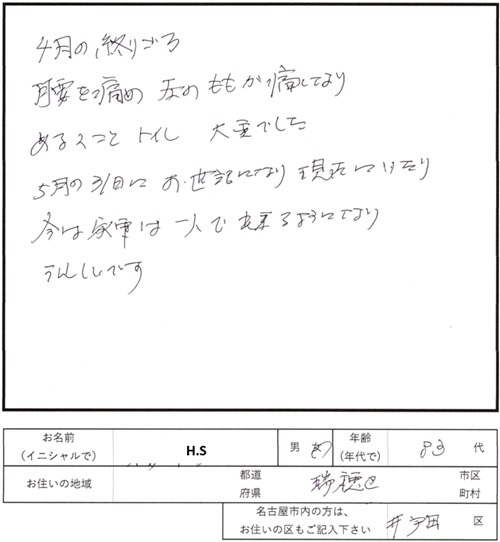 4月の終りごろ
腰を痛め 左のももが痛くなり
あるくこと トイレ 大変でした
5月の31日に お世話になり 現在にいたり
今は家事は一人で出来るようになり
うれしいです
お名前
(イニシャルで)
H.S
男 女
年齢
(年代で)
83 代
お住いの地域
都道
府県
瑞穂区
市区
町村
名古屋市内の方は、
お住いの区もご記入下さい
区